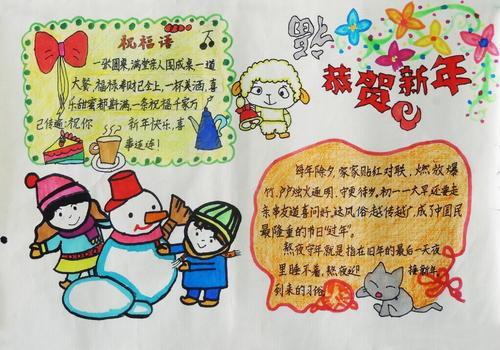 祝福语
一张圆桌,满堂亲人围成桌一道
大餐,福禄寿财已全上,一杯美酒,喜
乐甜蜜都斟满,一条祝福千家万
已传遍:祝你 新年快乐,喜
事连连!
福
恭贺新年
每年除夕,家家贴红对联,燃放爆
竹,户户烛火通明,守更待岁,初一一大早还要走
亲串友道喜问好,这风俗越传越广,成了中国民
最隆重的节日"过年"。
熬夜守年就是指在旧年的最后一天夜
里睡不着,熬夜迎 接新年
到来的习俗